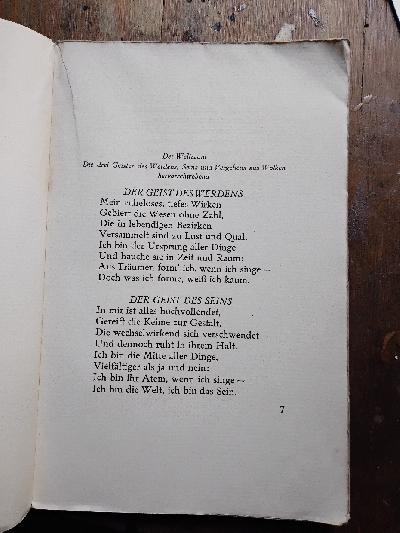 Der Weltraum
Die drei Geister des Werdens, Seins und Vergehens aus Wolken
hervorschwebend
DER GEIST DES WERDENS
Mein ruheloses, tiefes Wirken
Gebiert die Wesen ohne Zahl,
Die in lebendigen Bezirken
Versammelt sind zu Lust und Qual.
Ich bin der Ursprung aller Dinge
Und hauche sie in Zeit und Raum:
Aus Träumen form' ich, wenn ich singe –
Doch was ich forme, weiß ich kaum.
DER GEIST DES SEINS
In mir ist alles hochvollendet,
Gereift die Keime zur Gestalt,
Die wechselwirkend sich verschwendet
Und dennoch ruht in ihrem Halt.
Ich bin die Mitte aller Dinge,
Vielfältiger als ja und nein:
Ich bin Ihr Atem, wenn ich singe –
Ich bin die Welt, ich bin das Sein.
7